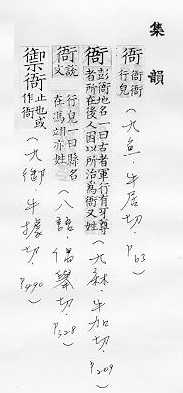 集韻
衙 衙衙行皃(九魚·牛居切·P63)
衙 彭衙地名一曰古者軍行有牙尊者所在後人因以所治為衙又姓(九麻·牛加切·P209)
衙 說文行皃一曰縣名在馮翊亦姓(八語·偶舉切·P328)
禦衙 止也或作衙(九御·牛據切·P490)